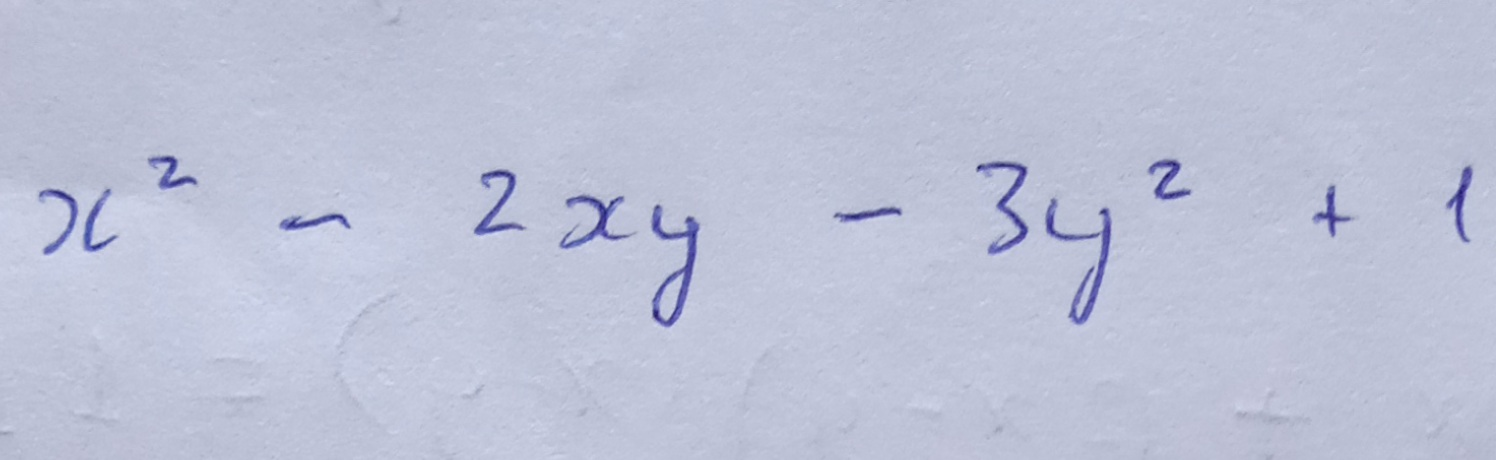 x² - 2xy - 3y² + 1